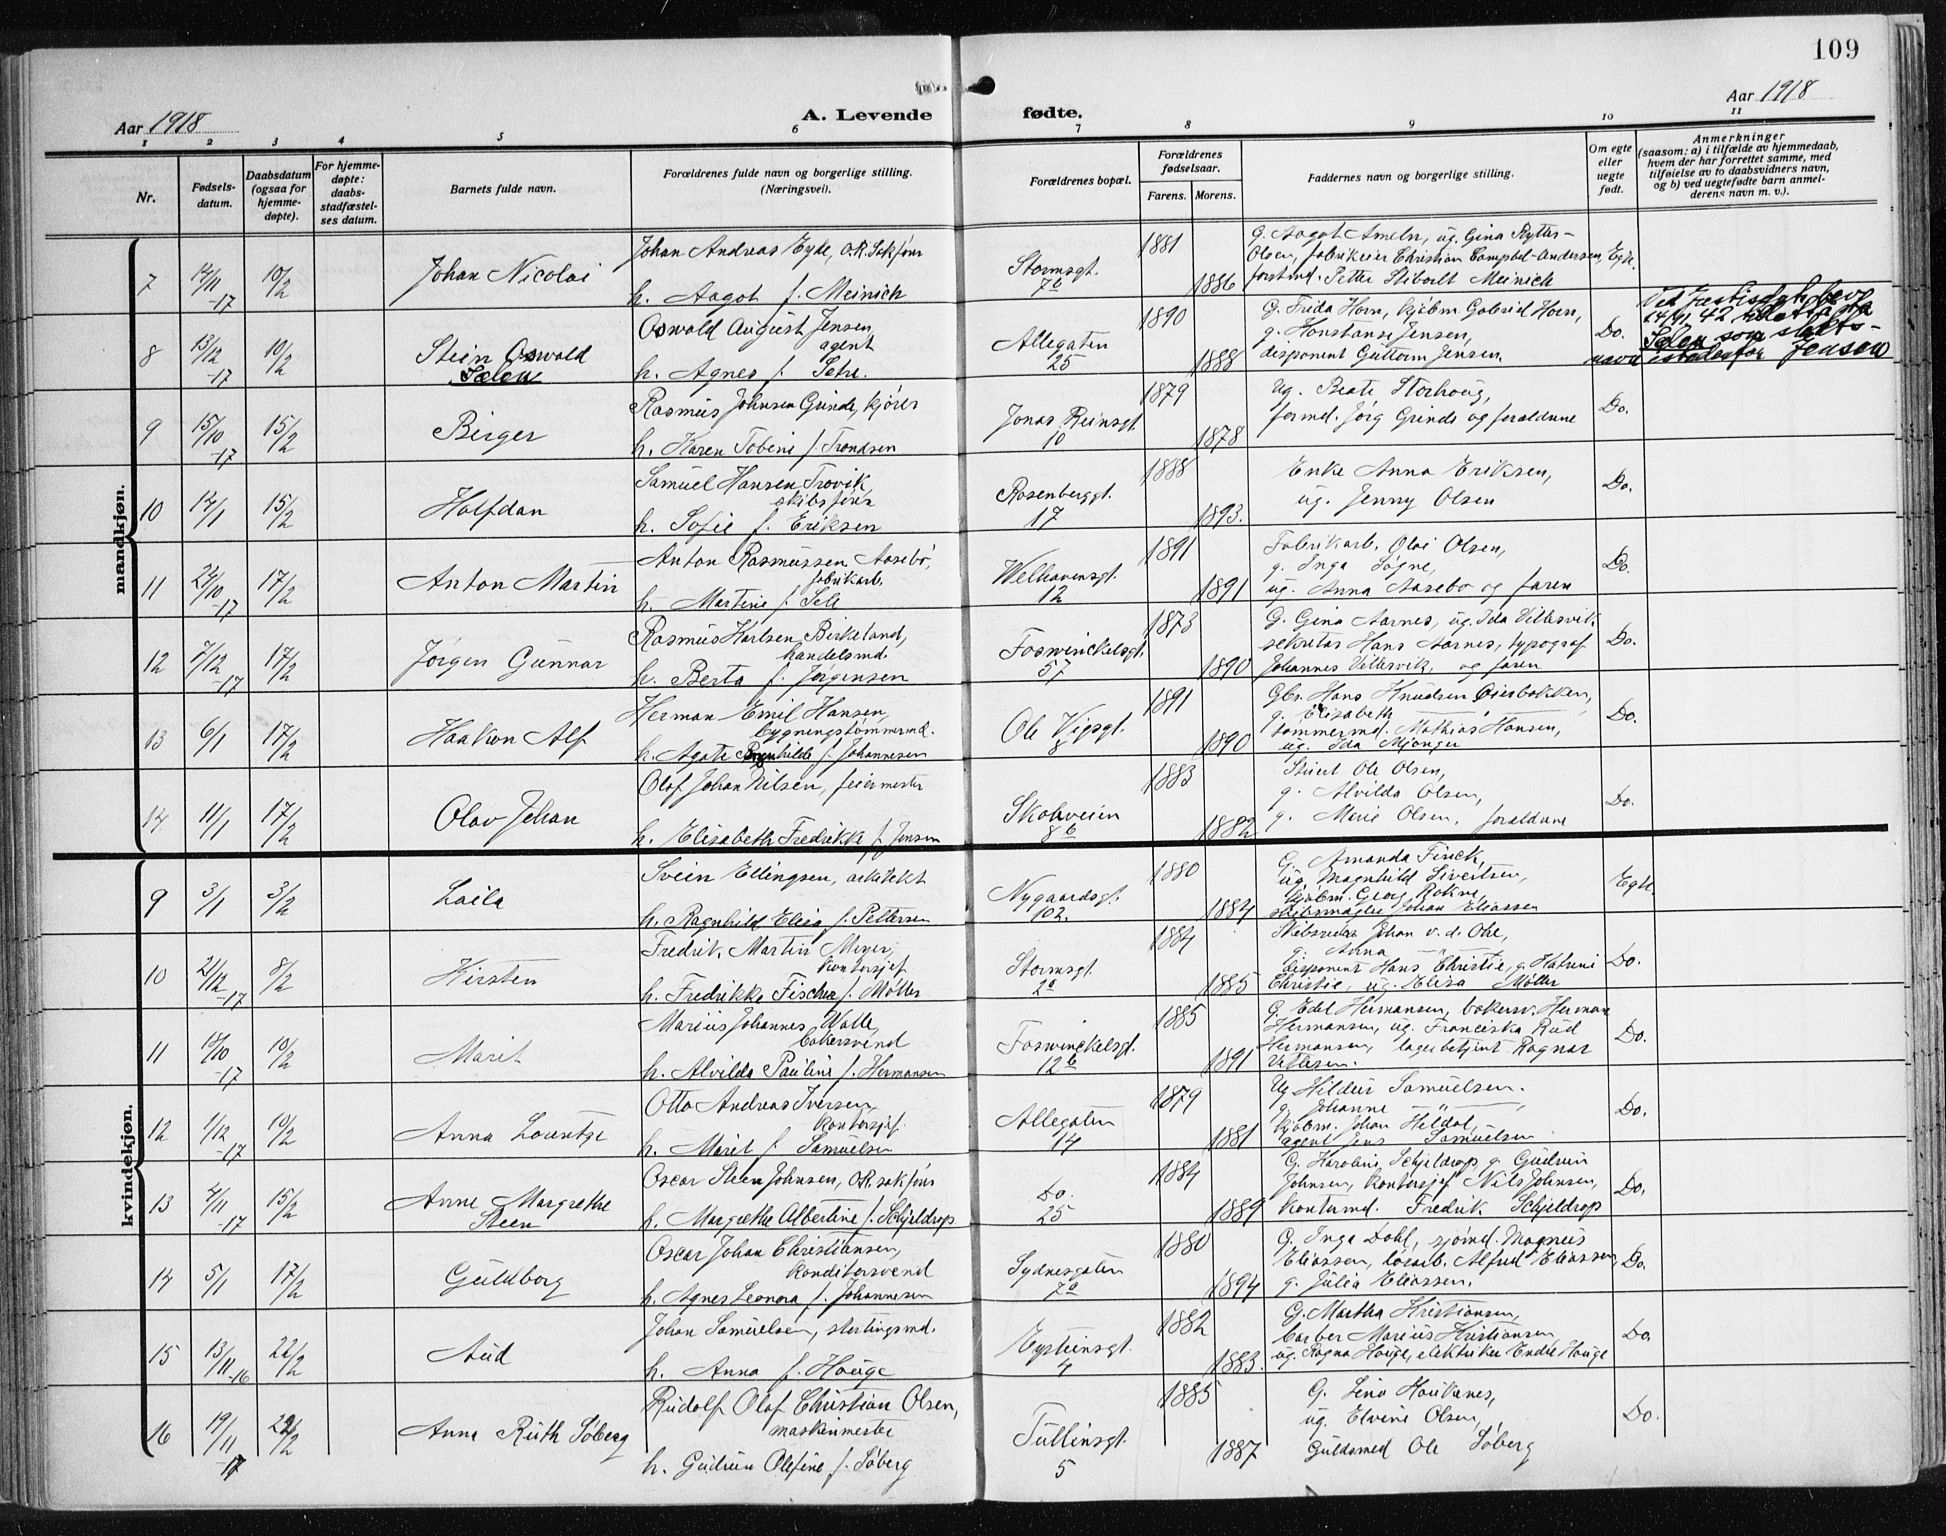 109
Aar 1918
A. Levende fødte.
Aar 1918
1 2 3 4 5 6 7 8 9 10 11
Nr.
Fødsels-
datum.
Daabsdatum
(ogsaa for
hjemme-
døpte).
For hjemme-
døpte:
daabs-
stadfæstel-
ses datum.
Barnets fulde navn.
Forældrenes fulde navn og borgerlige stilling.
(Næringsvei).
Forældrenes bopæl.
Forældrenes
fødselsaar.
Farens. Morens.
Faddernes navn og borgerlige stilling.
Om egte
eller
uegte
født.
Anmerkninger
(saasom: a) i tilfælde av hjemmedaab,
hvem der har forrettet samme, med
tilføielse av to daabsvidners navn,
og b) ved uegtefødte barn anmel-
derens navn m. v.).
mandkjøn.
7 14/11-17 10/2 Johan Nicolai
Johan Andreas Eyde, O.R.Sakfører
h. Aagot f. Meinich
Stormsgt.
7b
1881
1886
G. Aagot Ameln, ug. Gina Rytter-
Olsen, fabrikeier Christian Campbel-Andersen,
forstmd. Petter Stibolt Meinich
Egte.
8 13/12-17 10/2 Stein Oswald
Sælen
Oswald August Jensen,
agent
h. Agnes f. Sehr.
Allegaten
25
1890
1888
G. Frida Horn, kjøbm. Gabriel Horn,
g. Konstanse Jensen,
disponent Guttorm Jensen
Do.
14/4 42
Sælen som slekts-
navn istedenfor Jensen
9 15/10-17 15/2 Birger
Rasmus Johnsen Grinde, kjører
h. Karen Tobine f. Trondsen
Jonas Reinsgt.
10
1879
1878
ug. Beate Storhoug,
formd. Jørg Grinde og forældrene
Do.
10 14/1 15/2 Halfdan
Samuel Hansen Trovik,
skibsfører
h. Sofie f. Eriksen
Rosenberggt.
17
1888
1893.
Enke Anna Eriksen,
ug. Jenny Olsen
Do.
11 24/10-17 17/2 Anton Martin
Anton Rasmussen Aasebø,
fabrikarb.
h. Martine f. Sele
Welhavensgt.
12
1891
1891
Fabrikarb. Olai Olsen,
g. Inga Søgne,
ug. Anna Aasebø og faren
Do.
12 7/12-17 17/2 Jørgen Gunnar
Rasmus Karlsen Birkeland,
handelsmd.
h. Berta f. Jørgensen
Foswinckelsgt.
57
1873
1890
G. Gina Aarnes, ug. Ida Villesvik,
sekretær Hans Aarnes, typograf
Johannes Villesvik, og faren
Do.
13 6/1 17/2 Haakon Alf
Herman Emil Hansen,
bygningstømmermd.
h. Agate Ragnhilde f. Johannesen
Ole Vigsgt.
8
1891
1890
Gbr. Hans Knudsen Øiesbakken,
g. Elisabeth
tømmermd. Mathias Hansen,
ug. Ida Mjanger
Do.
14 11/1 17/2 Olav Johan
Olaf Johan Nilsen, feiermester
h. Elisabeth Fredrikke f. Jensen
Skoleveien
8b
1883
1882
Stuert Ole Olsen,
g. Alvilda Olsen,
g. Marie Olsen, forældrene
Do.
kvindekjøn.
9 3/1 3/2 Laila
Svein Ellingsen, arkitekt
h. Ragnhild Elisa f. Pettersen
Nygaardsgt.
102.
1880
1884
G. Amanda Finck,
ug. Magnhild Sivertsen,
kjøbm. Georg Rokne,
skibsmægler Johan Eliassen
Egte.
10 21/12-17 8/2 Kirsten
Fredrik Martin Meyer,
kontorsjef
h. Fredrikke Fischer f. Møller
Stormsgt.
2a
1884
1885
Skibsreder Johan v. d. Ohe,
g. Anna — " —
disponent Hans Christie, g. Katrine
Christie, ug. Elisa Møller
Do.
11 15/10-17 10/2 Marit
Marius Johannes Walle,
bakersvend
h. Alvilda Pauline f. Hermansen
Foswinckelsgt.
12b
1885
1891
G. Edel Hermansen, bakersv. Herman
Hermansen, ug. Franciska Rud
Hermansen, lagerbetjent Ragnar
Do.
12 1/12-17 10/2 Anna Lorentze
Otto Andreas Iversen,
kontorsjef.
h. Marit f. Samuelsen
Allegaten
14
1879
1881
Ug Hildur Samuelsen.
g. Johanne — " —,
kjøbm. Johan Heldal,
agent Jens Samuelsen
Do.
13 4/11-17 15/2 Anne Margrethe
Steen
Oscar Steen Johnsen, O.R.sakfører
h. Margrethe Albertine f. Schjeldrop
Do.
25
1884
1889
G. Karoline Schjeldrop, g. Gudrun
Johnsen, kontorsjef Nils Johnsen,
kontormd. Fredrik Schjeldrop
Do.
14 5/1 17/2 Guldborg
Oscar Johan Christiansen,
konditorsvend
h. Agnes Leonora f. Johannesen
Sydnesgaten
7a
1880
1894
G. Inga Dahl, sjømd. Magnus
Eliassen, løsarb. Alfred Eliassen,
g. Julia Eliassen.
Do.
15 13/11-16 22/2 Aud
Johan Samuelsen, stortingsmd.
h. Anna f. Hauge
Eysteinsgt.
4
1882
1883.
G. Martha Kristiansen,
barber Marius Kristiansen,
ug. Ragna Hauge, elektriker Endre Hauge
Do.
16 19/11-17 22/2 Anna Ruth Søberg
Rudolf Olaf Christian Olsen,
maskinmester
h. Gudrun Olefine f. Søberg
Tullinsgt.
5
1885
1887
G. Lina Haukenes,
ug. Elvine Olsen,
Guldsmed Ole Søberg
Do.